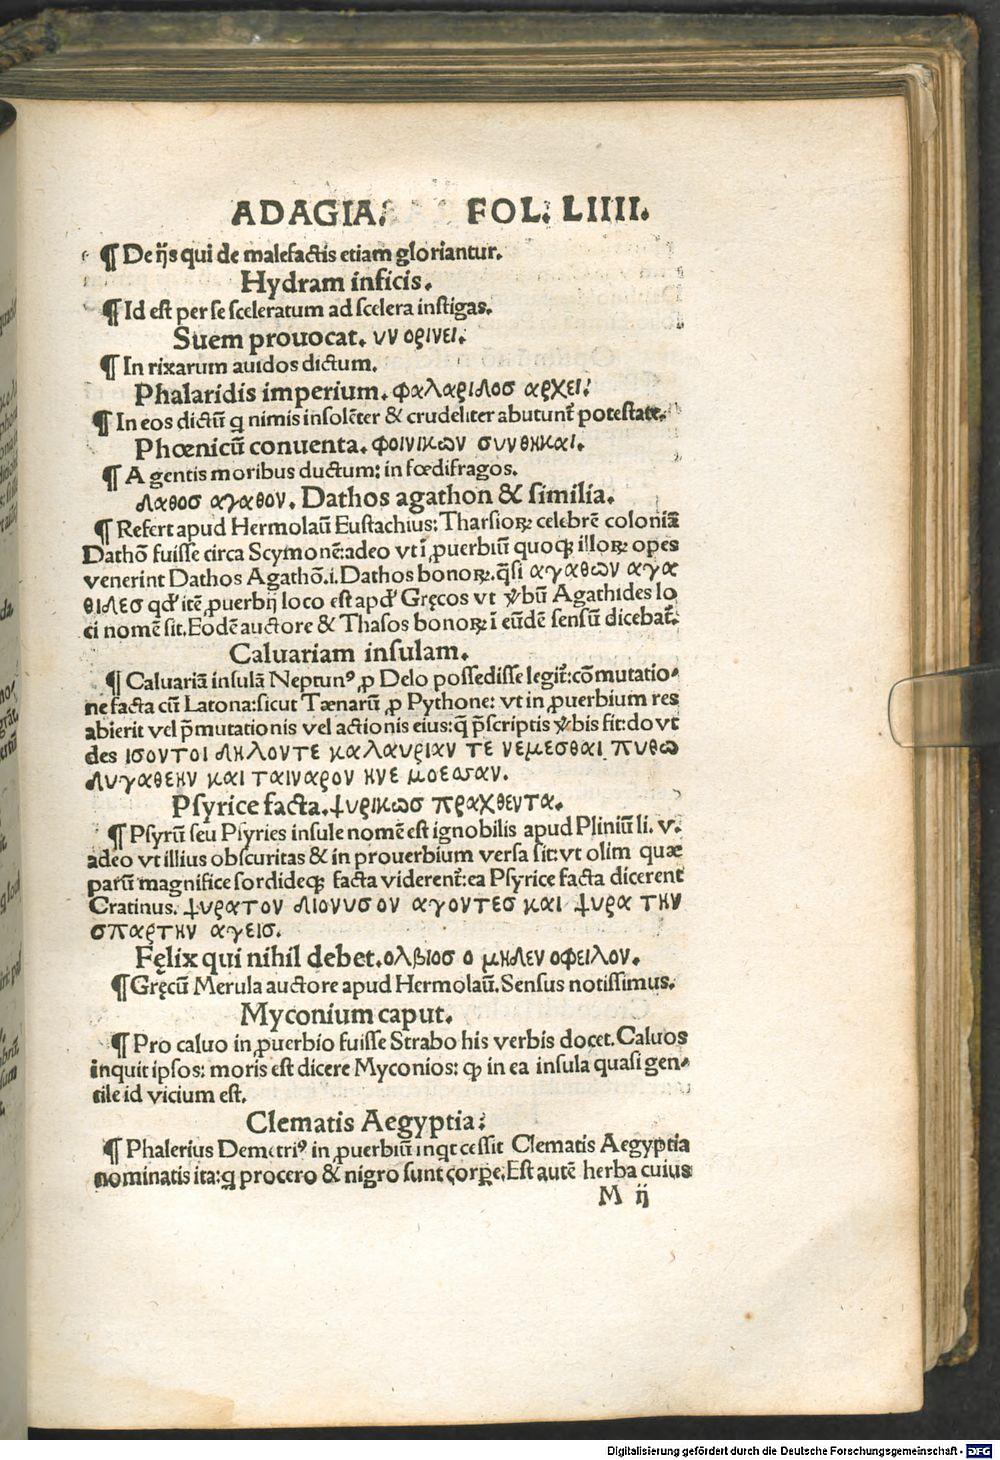 ADAGIA. FOL. LIIII.
¶ De ijs qui de malefactis etiam gloriantur.
Hydram inficis.
¶ Id est per se sceleratum ad scelera instigas.
Suem prouocat. υν ορινει.
¶ In rixarum auidos dictum.
Phalaridis imperium. φαλαριδοσ αρχει.
¶ In eos dictū q nimis insolēter & crudeliter abutunt᷑ potestate.
Phœnicū conuenta. φοινικων συνθηκαι.
¶ A gentis moribus ductum: in fœdifragos.
Δαθοσ αγαθον. Dathos agathon & similia.
¶ Refert apud Hermolaū Eustachius: Tharsioꝝ celebrē coloniā
Dathō fuisse circa Scymonē: adeo vt ī ꝓuerbiū quoqꝫ illoꝝ opes
venerint Dathos Agathō .i. Dathos bonoꝝ. q̄si αγαθων αγα
θιδεσ qd' itē ꝓuerbij loco est apd' Gręcos vt v'bū Agathides lo
ci nomē sit. Eodē auctore & Thasos bonoꝝ ī eūdē sensū dicebat᷑.
Caluariam insulam.
¶ Caluariā insulā Neptunꝰ ꝓ Delo possedisse legit᷑: cō mutatio-
ne facta cū Latona: sicut Tænarū ꝓ Pythone: vt in ꝓuerbium res
abierit vel p̄mutationis vel actionis eius: q̄ p̄scriptis v'bis fit: do vt
des ισοντοι δηλοντε καλαυριαν τε νεμεσθαι πυθω
δυγαθεην και ταιναρον ηνε μοεσσαν.
Psyrice facta. ψυρικωσ πραχθεντα.
¶ Psyrū seu Psyries insule nomē est ignobilis apud Pliniū li. v.
adeo vt illius obscuritas & in prouerbium versa sit: vt olim quæ
parū magnifice sordideqꝫ facta viderent᷑: ea Psyrice facta dicerent
Cratinus. ψυρατον διονυσον αγοντεσ και ψυρα την
σπαρτην αγεισ.
Fęlix qui nihil debet. ολβιοσ ο μηδεν οφειλον.
¶ Gręcū Merula auctore apud Hermolaū. Sensus notissimus.
Myconium caput.
¶ Pro caluo in ꝓuerbio fuisse Strabo his verbis docet. Caluos
inquit ipsos: moris est dicere Myconios: ꝙ in ea insula quasi gen-
tile id vicium est.
Clematis Aegyptia:
¶ Phalerius Demetriꝰ in ꝓuerbiū inqt cessit Clematis Aegyptia
nominatis ita: q procero & nigro sunt corꝑe. Est autē herba cuius
M ij
Digitalisierung gefördert durch die Deutsche Forschungsgemeinschaft - DFG